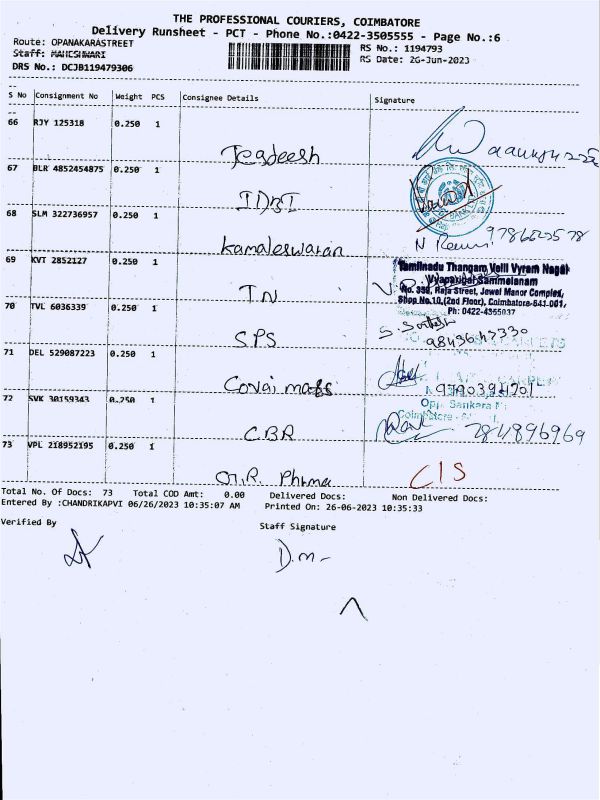 THE PROFESSIONAL COURIERS, COIMBATORE
Delivery Runsheet - PCT - Phone No.:0422-3505555 - Page No.:6
Route: OPANAKARASTREET
RS No.: 1194793
Staff: MAHESHWARI
RS Date: 26-Jun-2023
DRS No.: DCJB119479306
S No Consignment No Weight PCS Consignee Details Signature
66 RJY 125318 0.250 1
Jegdeesh
67 BLR 4852454875 0.250 1
IDBI
68 SLM 322736957 0.250 1
Kamaleswaran
69 KVT 2852127 0.250 1
TN
Tamilnadu Thangam Velli Vyram Nagai
Vyaparigal Sammelanam
No. 398, Raja Street, Jewel Manor Complex,
Shop No.10,(2nd Floor), Coimbatore-641 001.
Ph: 0422-4355037
70 TVL 6036339 0.250 1
SPS
9843647330
71 DEL 529087223 0.250 1
Covai mags
9790394701
72 SVK 30159343 0.250 1
CBR
Opp. Sankara
Coimbatore -
784896969
73 VPL 218952195 0.250 1
O.R. Phrma
CIS
Total No. Of Docs: 73 Total COD Amt: 0.00 Delivered Docs: Non Delivered Docs:
Entered By :CHANDRIKAPVI 06/26/2023 10:35:07 AM Printed On: 26-06-2023 10:35:33
Verified By
Staff Signature
D.m-